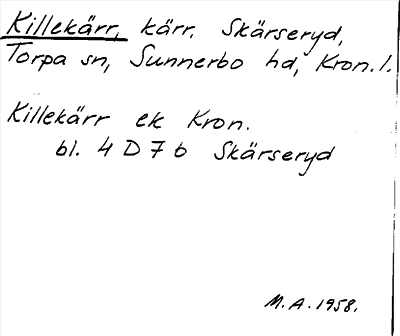 Killekärr, kärr, Skärseryd,
Torpa sn, Sunnerbo hd, Kron. l.
Killekärr ek Kron.
bl. 4 D 7 b Skärseryd
M. A. 1958.